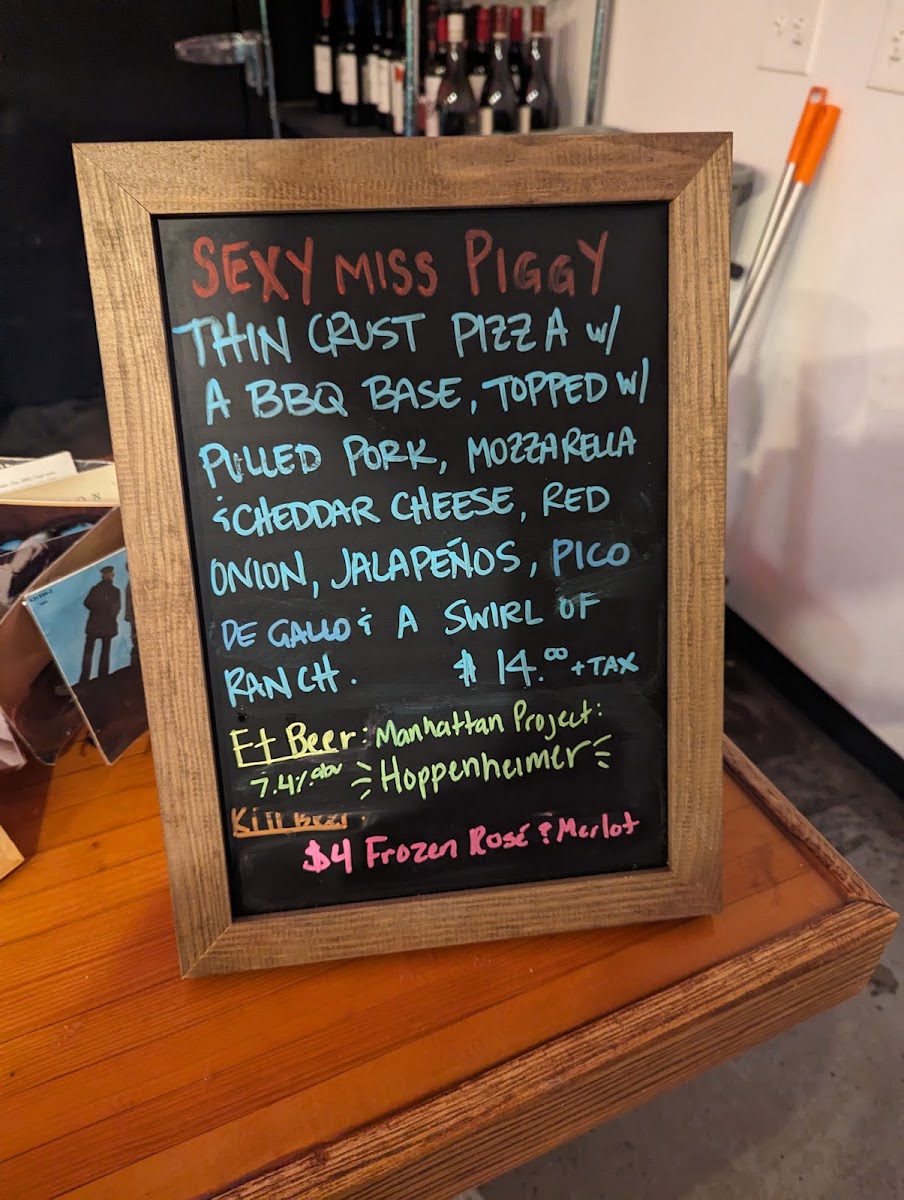 SEXY MISS PIGGY
THIN CRUST PIZZA w/
A BBQ BASE, TOPPED W/
PULLED PORK, MOZZARELLA
& CHEDDAR CHEESE, RED
ONION, JALAPEÑOS, PICO
DE GALLO & A SWIRL OF
RANCH. $14.00 + TAX
Ft Beer: Manhattan Project:
7.4% abv Hoppenheimer
Kill Beer
$4 Frozen Rosé & Merlot